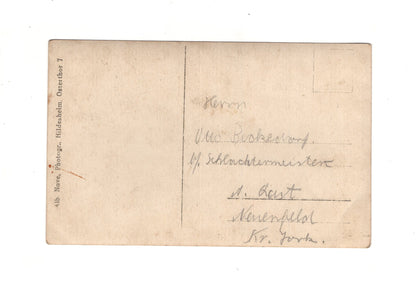 Alb. Nave, Photogr., Hildesheim, Osterthor 7
Herrn
Otto Bockedorf.
b/ Schlachtermeister
A. Rust
Neuenfeld
Kr. Jork.